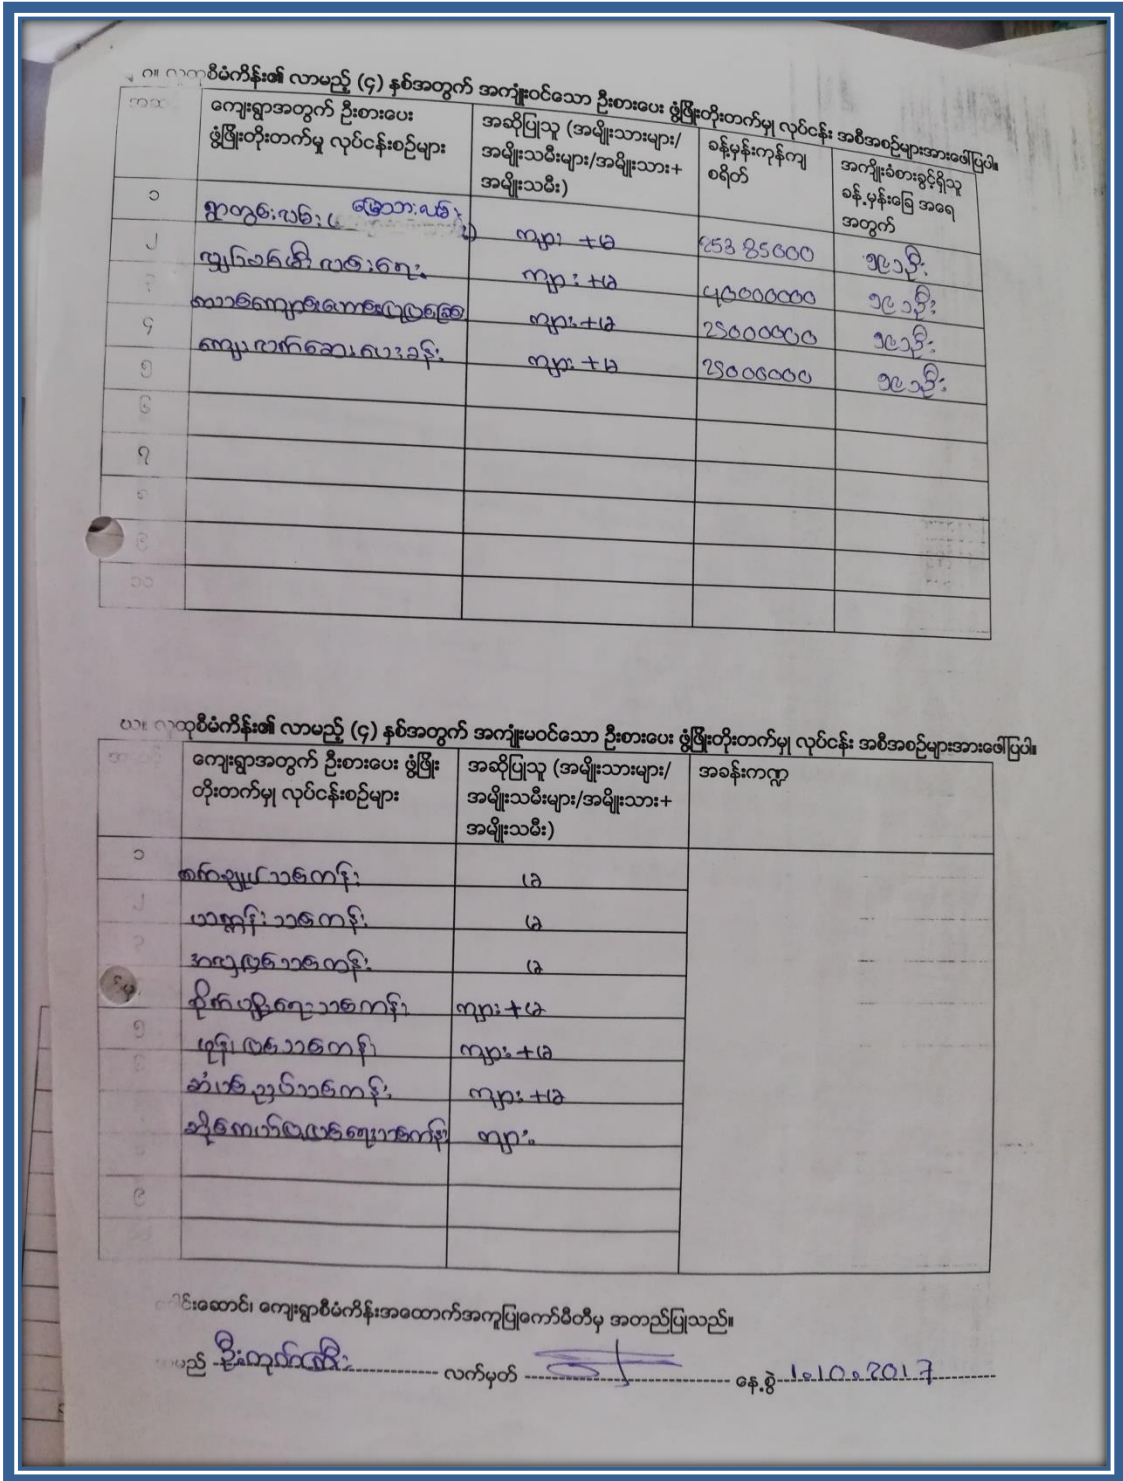 ဂ။ လူထုစီမံကိန်း၏ လာမည့် (၄) နှစ်အတွက် အကျုံးဝင်သော ဦးစားပေး ဖွံ့ဖြိုးတိုးတက်မှု လုပ်ငန်း အစီအစဉ်များအားဖေါ်ပြပါ။
ကျေးရွာအတွက် ဦးစားပေး ဖွံ့ဖြိုးတိုးတက်မှု လုပ်ငန်းစဉ်များ
အဆိုပြုသူ (အမျိုးသားများ/ အမျိုးသမီးများ/အမျိုးသား+ အမျိုးသမီး)
ခန့်မှန်းကုန်ကျ စရိတ်
အကျိုးခံစားခွင့်ရှိသူ ခန့်မှန်းခြေ အရေ အတွက်
၁ ရွာတွင်းလမ်း (မြေသားလမ်း) ကျား +မ 25385000 ၅၉၁ဦး
၂ လျှပ်စစ်မီး လမ်းရေး ကျား +မ 40000000 ၅၉၁ဦး
၃ စာသင်ကျောင်းဟောင်းပြုပြင်ခြင်း ကျား+မ 25000000 ၅၉၁ဦး
၄ ကျေးလက်ဆေးပေးခန်း ကျား +မ 25000000 ၅၉၁ဦး
၅
၆
၇
၈
၉
၁၀
ဃ။ လူထုစီမံကိန်း၏ လာမည့် (၄) နှစ်အတွက် အကျုံးမဝင်သော ဦးစားပေး ဖွံ့ဖြိုးတိုးတက်မှု လုပ်ငန်း အစီအစဉ်များအားဖေါ်ပြပါ။
ကျေးရွာအတွက် ဦးစားပေး ဖွံ့ဖြိုး တိုးတက်မှု လုပ်ငန်းစဉ်များ
အဆိုပြုသူ (အမျိုးသားများ/ အမျိုးသမီးများ/အမျိုးသား+ အမျိုးသမီး)
အခန်းကဏ္ဍ
၁ စက်ချုပ်သင်တန်း မ
၂ ယာဏ္ဏန်းသင်တန်း မ
၃ အလှပြင်သင်တန်း မ
စိုက်ပျိုးရေးသင်တန်း ကျား +မ
၅ ဖုန်းပြင်သင်တန်း ကျား +မ
၆ ဆံပင်ညှပ်သင်တန်း ကျား +မ
ဆိုင်ကယ်ပြုပြင်ရေးသင်တန်း ကျား
၉
ခေါင်းဆောင်၊ ကျေးရွာစီမံကိန်းအထောက်အကူပြုကော်မီတီမှ အတည်ပြုသည်။
အမည် လက်မှတ် နေ့စွဲ 1.10.2017